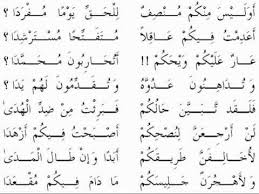 أَوَلَيْسَ مِنْكُمْ مُنْصِفٌ لِلْحَقِّ يَوْمًا مُفْرَدَا ؟
أَعَدِمْتُ فِيكُمْ عَاقِلًا مُتَفَتِّحًا مُسْتَرْشِدَا ؟
عَارٌ عَلَيْكُمْ وَيْحَكُمْ !! أَتُحَارِبُونَ مُحَمَّدَا ؟
وَتُدَاهِنُونَ عَدُوَّهُ وَتُقَدِّمُونَ لَهُمْ يَدَا ؟
فَلَقَدْ تَبَيَّنَ حَالُكُمْ فَبَرِئْتُ مِنْ ضِدِّ الْهُدَى
لَنْ أَرْجِعَنَّ لِنَصْحِكُمْ أَصْبَحْتُ فِيكُمْ أَزْهَدَا
لَأُخَالِفَنَّ طَرِيقَكُمْ أَبَدًا وَإِنْ طَالَ الْمَدَى
وَلَأَهْجُرَنَّ مَجِيئَكُمْ مَا دَامَ فِيكُمْ مُقْعَدَا